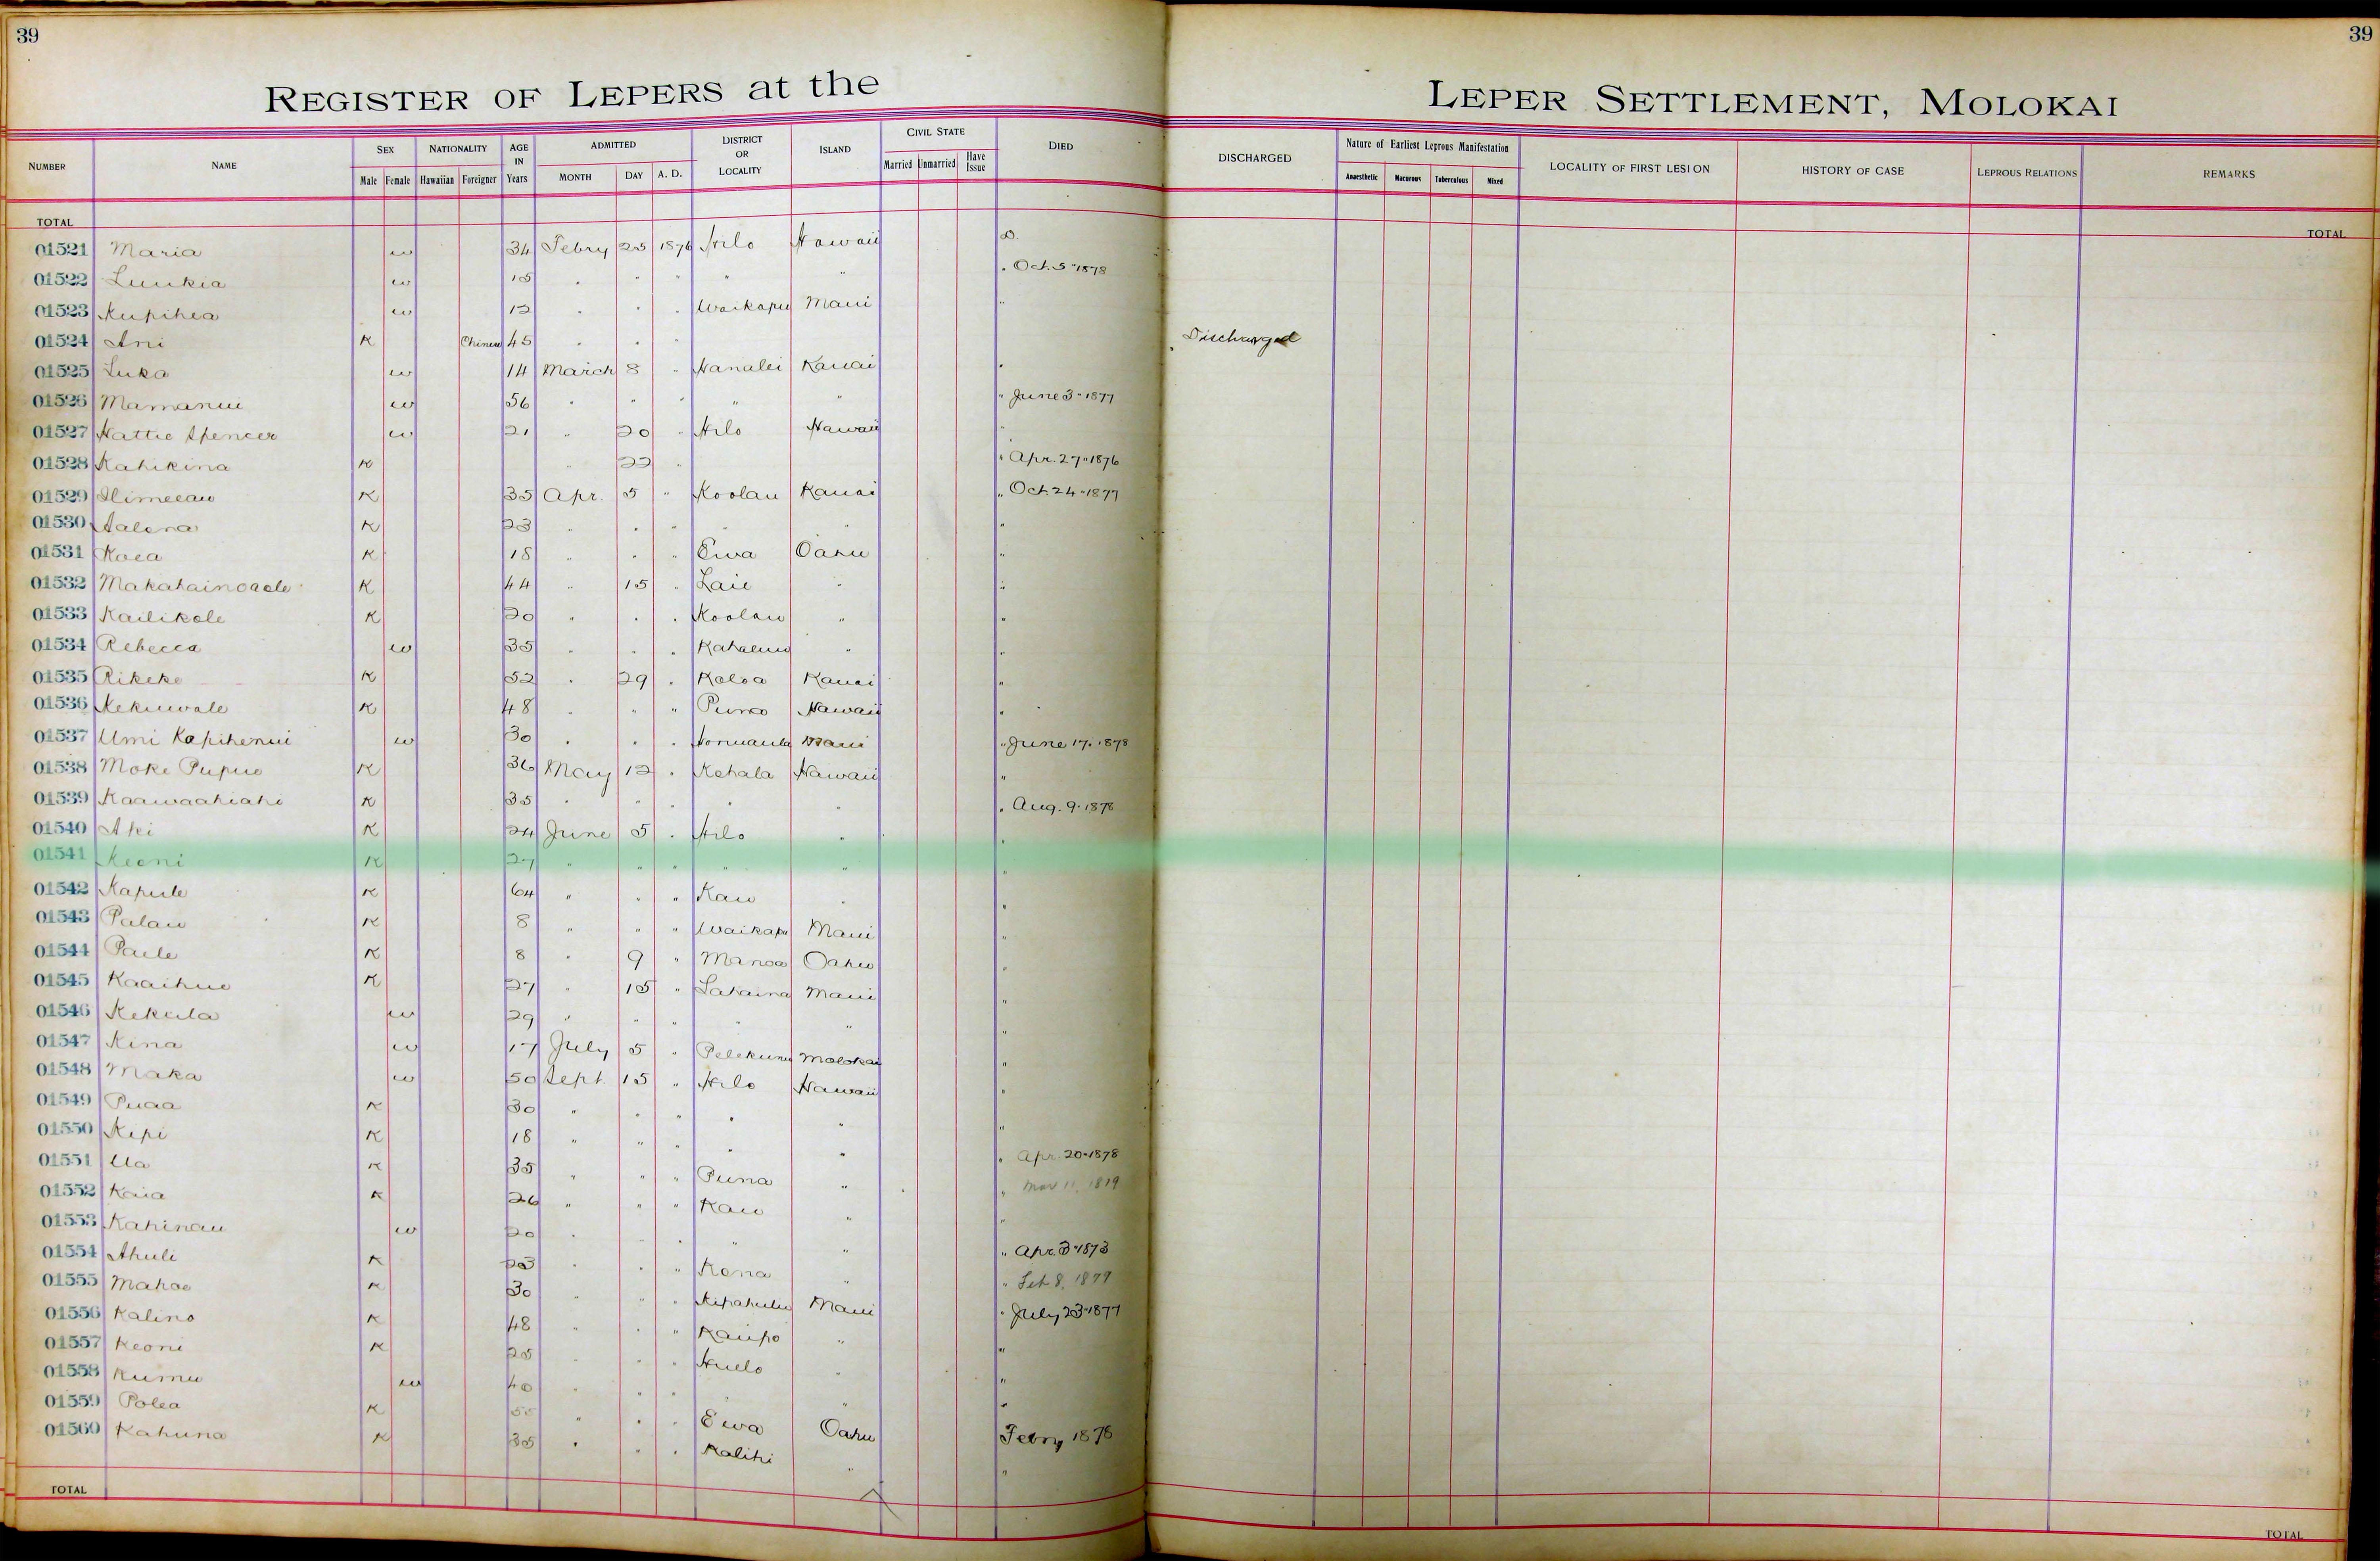 39
39
REGISTER OF LEPERS at the LEPER SETTLEMENT, MOLOKAI
NUMBER NAME SEX NATIONALITY AGE IN Years ADMITTED DISTRICT OR LOCALITY ISLAND CIVIL STATE DIED DISCHARGED Nature of Earliest Leprous Manifestation LOCALITY OF FIRST LESION HISTORY OF CASE LEPROUS RELATIONS REMARKS
Male Female Hawaiian Foreigner MONTH DAY A. D. Married Unmarried Have Issue Anaesthetic Macurous Tuberculous Mixed
TOTAL TOTAL
01521 Maria w 34 Febry 25 1876 Hilo Hawaii D.
01522 Luukia w 15 " " " " " " Oct. 5 " 1878
01523 Kupihea w 12 " " " Waikapu Maui "
01524 Ani K Chinese 45 " " " Discharged
01525 Luka w 14 March 8 " Hanalei Kauai "
01526 Mamanui w 56 " " " " " " June 3 " 1877
01527 Hattie Spencer w 21 " 20 " Hilo Hawaii "
01528 Kahikina K " 22 " " Apr. 27 " 1876
01529 K 35 Apr. 5 " Koolau Kauai " Oct. 24 " 1877
01530 Aalona K 23 " " " " " "
01531 Koea K 18 " " " Ewa Oahu "
01532 Makahainoaole K 44 " 15 " Laie " "
01533 Kailikole K 20 " " " Koolau " "
01534 Rebecca w 35 " " " Kahaluu " "
01535 Rikeke K 52 " 29 " Koloa Kauai "
01536 Kekuwale K 48 " " " Puna Hawaii "
01537 Umi Kapihenui w 30 " " " Honuaula Maui " June 17. 1878
01538 Moke Pupue K 36 May 12 " Kohala Hawaii "
01539 Kaawaahiahi K 35 " " " " " " Aug. 9. 1878
01540 Ahi K 24 June 5 " Hilo " "
01541 Keoni K 27 " " " " " "
01542 Kapule K 64 " " " Kau " "
01543 Palau K 8 " " " Waikapu Maui "
01544 Paele K 8 " 9 " Manoa Oahu "
01545 Kaaihue K 27 " 15 " Lahaina Maui "
01546 Kekula w 29 " " " " " "
01547 Kina w 17 July 5 " Pelekunu Molokai "
01548 Maka w 50 Sept. 15 " Hilo Hawaii "
01549 Puaa K 30 " " " " " "
01550 Kepi K 18 " " " " " "
01551 Ua K 35 " " " Puna " " Apr. 20 " 1878
01552 Kaia K 26 " " " Kau " " Mar 11, 1879
01553 Kahinau w 20 " " " " " "
01554 Ahuli K 23 " " " Kona " " Apr. 3 " 1873
01555 Mahoe K 30 " " " Kipahulu Maui " Feb 8, 1879
01556 Kalino K 48 " " " Kaupo " " July 23 " 1877
01557 Keoni K 25 " " " Huelo " "
01558 Kumu w 40 " " " " "
01559 Polea K 55 " " " Ewa Oahu Febry 1878
01560 Kahuna K 35 " " " Kalihi " "
TOTAL TOTAL